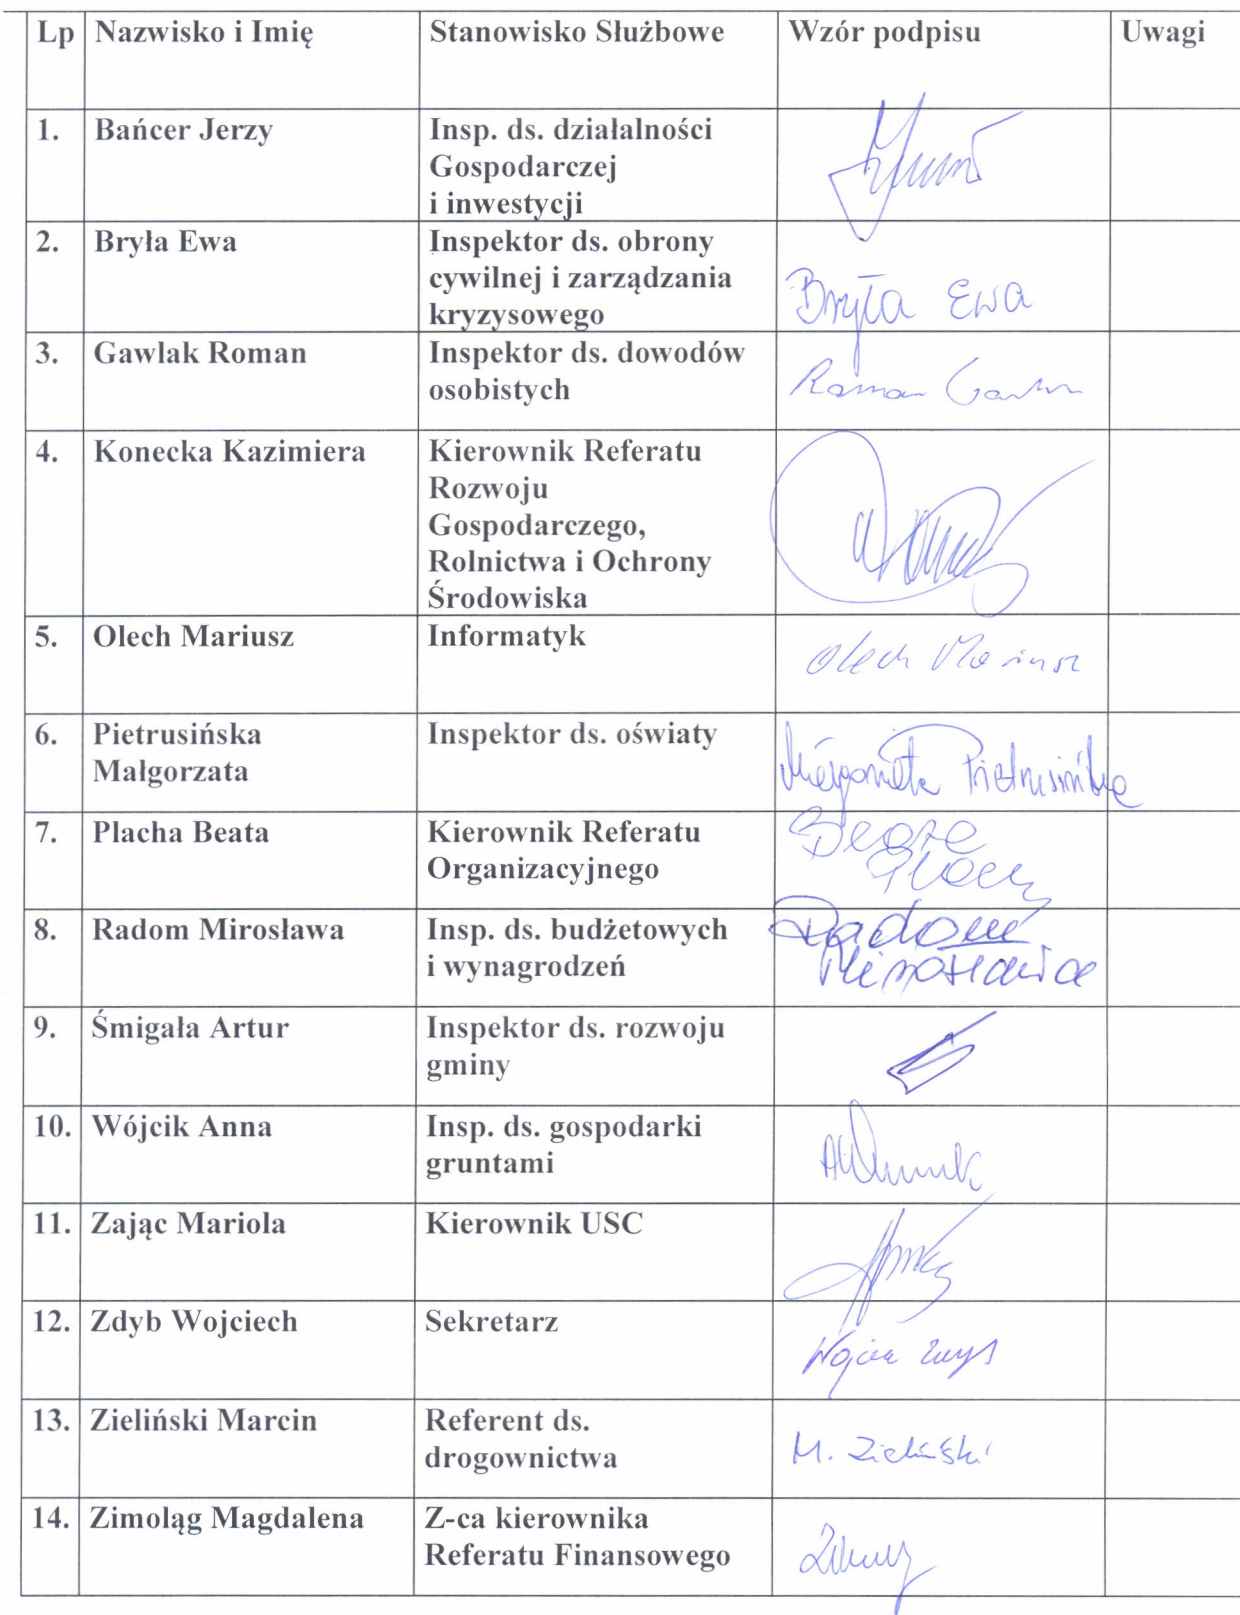 Lp Nazwisko i Imię Stanowisko Służbowe Wzór podpisu Uwagi
1. Bańcer Jerzy Insp. ds. działalności
Gospodarczej
i inwestycji
2. Bryła Ewa Inspektor ds. obrony
cywilnej i zarządzania
kryzysowego
Bryła Ewa
3. Gawlak Roman Inspektor ds. dowodów
osobistych
Roman
4. Konecka Kazimiera Kierownik Referatu
Rozwoju
Gospodarczego,
Rolnictwa i Ochrony
Środowiska
5. Olech Mariusz Informatyk
Olech Mariusz
6. Pietrusińska Inspektor ds. oświaty
Małgorzata
Małgorzata Pietrusińska
7. Placha Beata Kierownik Referatu
Organizacyjnego
Beata
Placha
8. Radom Mirosława Insp. ds. budżetowych
i wynagrodzeń
Radom
Mirosława
9. Śmigała Artur Inspektor ds. rozwoju
gminy
10. Wójcik Anna Insp. ds. gospodarki
gruntami
11. Zając Mariola Kierownik USC
12. Zdyb Wojciech Sekretarz
13. Zieliński Marcin Referent ds.
drogownictwa
M. Zieliński
14. Zimoląg Magdalena Z-ca kierownika
Referatu Finansowego